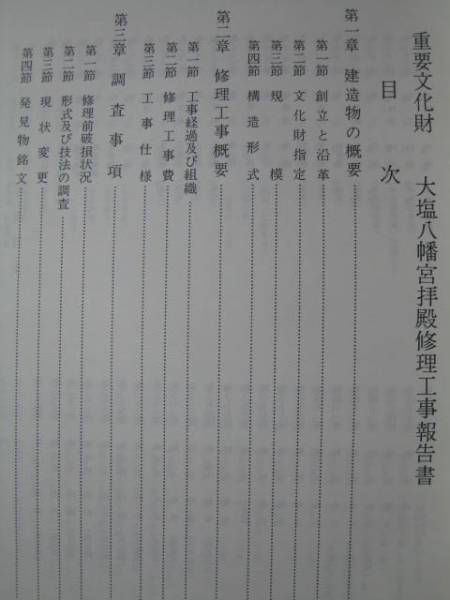 重要文化財　大塩八幡宮拝殿修理工事報告書
目次
第一章　建造物の概要
第一節　創立と沿革
第二節　文化財指定
第三節　規模
第四節　構造形式
第二章　修理工事概要
第一節　工事経過及び組織
第二節　修理工事費
第三節　工事仕様
第三章　調査事項
第一節　修理前破損状況
第二節　形式及び技法の調査
第三節　現状変更
第四節　発見物銘文